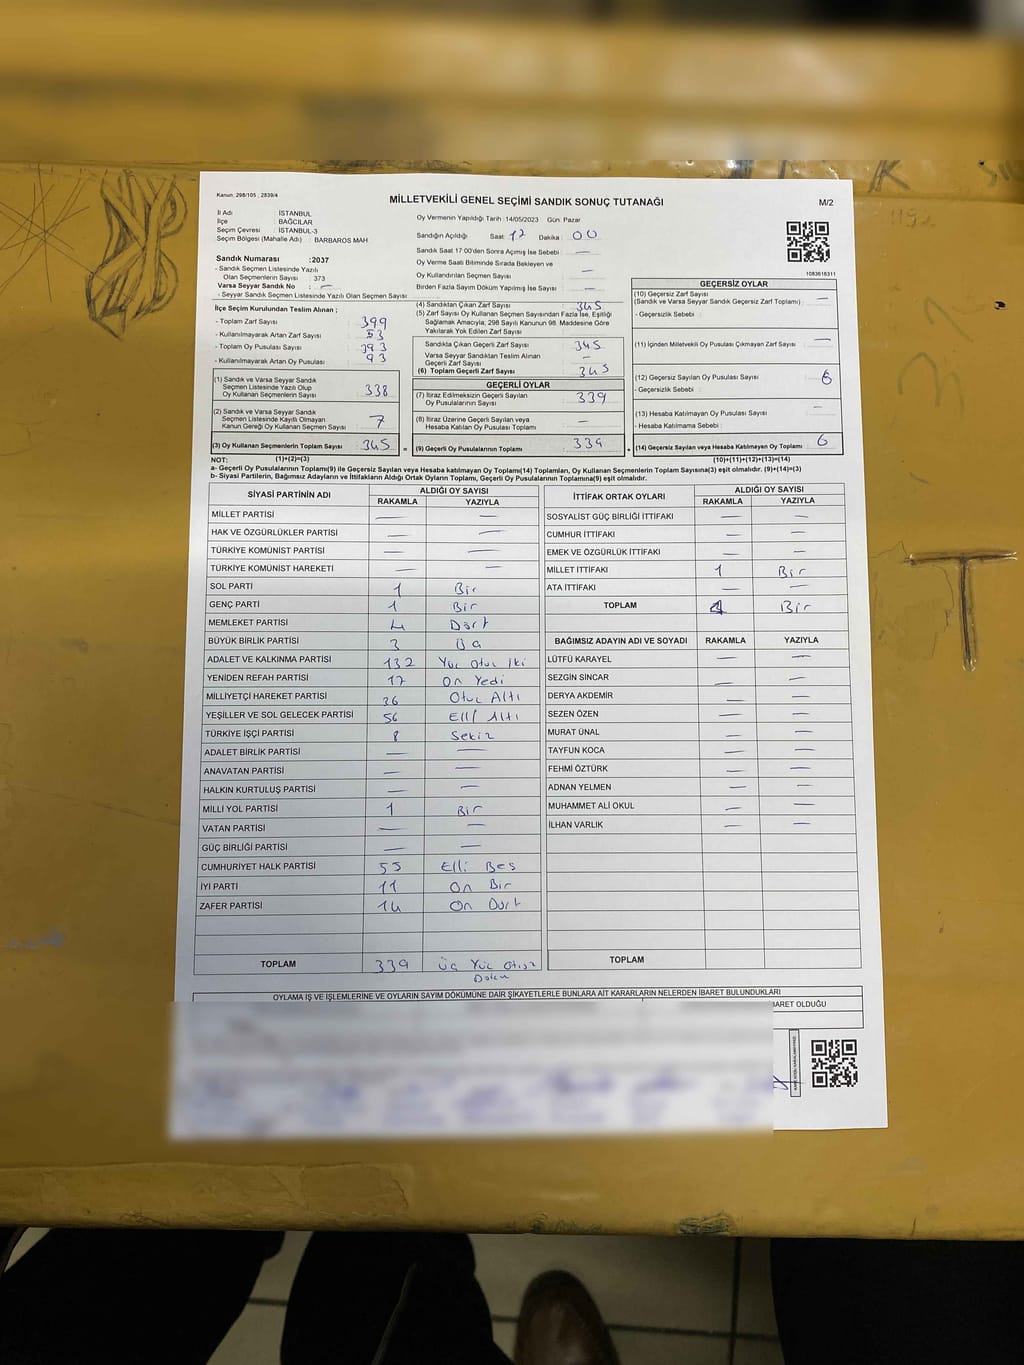 Kanun: 298/105 , 2839/4
MİLLETVEKİLİ GENEL SEÇİMİ SANDIK SONUÇ TUTANAĞI
M/2
İl Adı : İSTANBUL
İlçe : BAĞCILAR
Seçim Çevresi : İSTANBUL-3
Seçim Bölgesi (Mahalle Adı) : BARBAROS MAH
Sandık Numarası :2037
- Sandık Seçmen Listesinde Yazılı
Olan Seçmenlerin Sayısı : 373
Varsa Seyyar Sandık No : —
- Seyyar Sandık Seçmen Listesinde Yazılı Olan Seçmen Sayısı:
Oy Vermenin Yapıldığı Tarih :14/05/2023 Gün: Pazar
Sandığın Açıldığı Saat: 17 Dakika : 00
Sandık Saat 17:00'den Sonra Açımış İse Sebebi : —
Oy Verme Saati Bitiminde Sırada Bekleyen ve
Oy Kullandırılan Seçmen Sayısı : —
Birden Fazla Sayım Döküm Yapılmış İse Sayısı : —
1083616311
İlçe Seçim Kurulundan Teslim Alınan ;
- Toplam Zarf Sayısı : 399
- Kullanılmayarak Artan Zarf Sayısı : 53
- Toplam Oy Pusulası Sayısı : 393
- Kullanılmayarak Artan Oy Pusulası : 93
(1) Sandık ve Varsa Seyyar Sandık
Seçmen Listesinde Yazılı Olup
Oy Kullanan Seçmenlerin Sayısı : 338
(2) Sandık ve Varsa Seyyar Sandık
Seçmen Listesinde Kayıtlı Olmayan
Kanun Gereği Oy Kullanan Seçmen Sayısı : 7
(3) Oy Kullanan Seçmenlerin Toplam Sayısı : 345 =
(4) Sandıktan Çıkan Zarf Sayısı : 345
(5) Zarf Sayısı Oy Kullanan Seçmen Sayısından Fazla İse, Eşitliği
Sağlamak Amacıyla; 298 Sayılı Kanunun 98. Maddesine Göre
Yakılarak Yok Edilen Zarf Sayısı :
Sandıkta Çıkan Geçerli Zarf Sayısı : 345
Varsa Seyyar Sandıktan Teslim Alınan
Geçerli Zarf Sayısı : —
(6) Toplam Geçerli Zarf Sayısı : 345
GEÇERLİ OYLAR
(7) İtiraz Edilmeksizin Geçerli Sayılan
Oy Pusulalarının Sayısı : 339
(8) İtiraz Üzerine Geçerli Sayılan veya
Hesaba Katılan Oy Pusulası Toplamı : —
(9) Geçerli Oy Pusulalarının Toplamı : 339 +
GEÇERSİZ OYLAR
(10) Geçersiz Zarf Sayısı
(Sandık ve Varsa Seyyar Sandık Geçersiz Zarf Toplamı) : —
- Geçersizlik Sebebi :
(11) İçinden Milletvekili Oy Pusulası Çıkmayan Zarf Sayısı : —
(12) Geçersiz Sayılan Oy Pusulası Sayısı : 6
- Geçersizlik Sebebi :
(13) Hesaba Katılmayan Oy Pusulası Sayısı : —
- Hesaba Katılmama Sebebi :
(14) Geçersiz Sayılan veya Hesaba Katılmayan Oy Toplamı : 6
NOT: (1)+(2)=(3)
(10)+(11)+(12)+(13)=(14)
a- Geçerli Oy Pusulalarının Toplamı(9) ile Geçersiz Sayılan veya Hesaba katılmayan Oy Toplamı(14) Toplamları, Oy Kullanan Seçmenlerin Toplam Sayısına(3) eşit olmalıdır. (9)+(14)=(3)
b- Siyasi Partilerin, Bağımsız Adayların ve İttifakların Aldığı Ortak Oyların Toplamı, Geçerli Oy Pusulalarının Toplamına(9) eşit olmalıdır.
SİYASİ PARTİNİN ADI ALDIĞI OY SAYISI
RAKAMLA YAZIYLA
MİLLET PARTİSİ — —
HAK VE ÖZGÜRLÜKLER PARTİSİ — —
TÜRKİYE KOMÜNİST PARTİSİ — —
TÜRKİYE KOMÜNİST HAREKETİ — —
SOL PARTİ 1 Bir
GENÇ PARTİ 1 Bir
MEMLEKET PARTİSİ 4 Dört
BÜYÜK BİRLİK PARTİSİ 3 Üç
ADALET VE KALKINMA PARTİSİ 132 Yüz Otuz İki
YENİDEN REFAH PARTİSİ 17 On Yedi
MİLLİYETÇİ HAREKET PARTİSİ 36 Otuz Altı
YEŞİLLER VE SOL GELECEK PARTİSİ 56 Elli Altı
TÜRKİYE İŞÇİ PARTİSİ 8 Sekiz
ADALET BİRLİK PARTİSİ — —
ANAVATAN PARTİSİ — —
HALKIN KURTULUŞ PARTİSİ — —
MİLLİ YOL PARTİSİ 1 Bir
VATAN PARTİSİ — —
GÜÇ BİRLİĞİ PARTİSİ — —
CUMHURİYET HALK PARTİSİ 55 Elli Beş
İYİ PARTİ 11 On Bir
ZAFER PARTİSİ 14 On Dört
TOPLAM 339 Üç Yüz Otuz
Dokuz
İTTİFAK ORTAK OYLARI ALDIĞI OY SAYISI
RAKAMLA YAZIYLA
SOSYALİST GÜÇ BİRLİĞİ İTTİFAKI — —
CUMHUR İTTİFAKI — —
EMEK VE ÖZGÜRLÜK İTTİFAKI — —
MİLLET İTTİFAKI 1 Bir
ATA İTTİFAKI — —
TOPLAM 1 Bir
BAĞIMSIZ ADAYIN ADI VE SOYADI RAKAMLA YAZIYLA
LÜTFÜ KARAYEL — —
SEZGİN SİNCAR — —
DERYA AKDEMİR — —
SEZEN ÖZEN — —
MURAT ÜNAL — —
TAYFUN KOCA — —
FEHMİ ÖZTÜRK — —
ADNAN YELMEN — —
MUHAMMET ALİ OKUL — —
İLHAN VARLIK — —
TOPLAM
OYLAMA İŞ VE İŞLEMLERİNE VE OYLARIN SAYIM DÖKÜMÜNE DAİR ŞİKAYETLERLE BUNLARA AİT KARARLARIN NELERDEN İBARET BULUNDUKLARI
BARET OLDUĞU